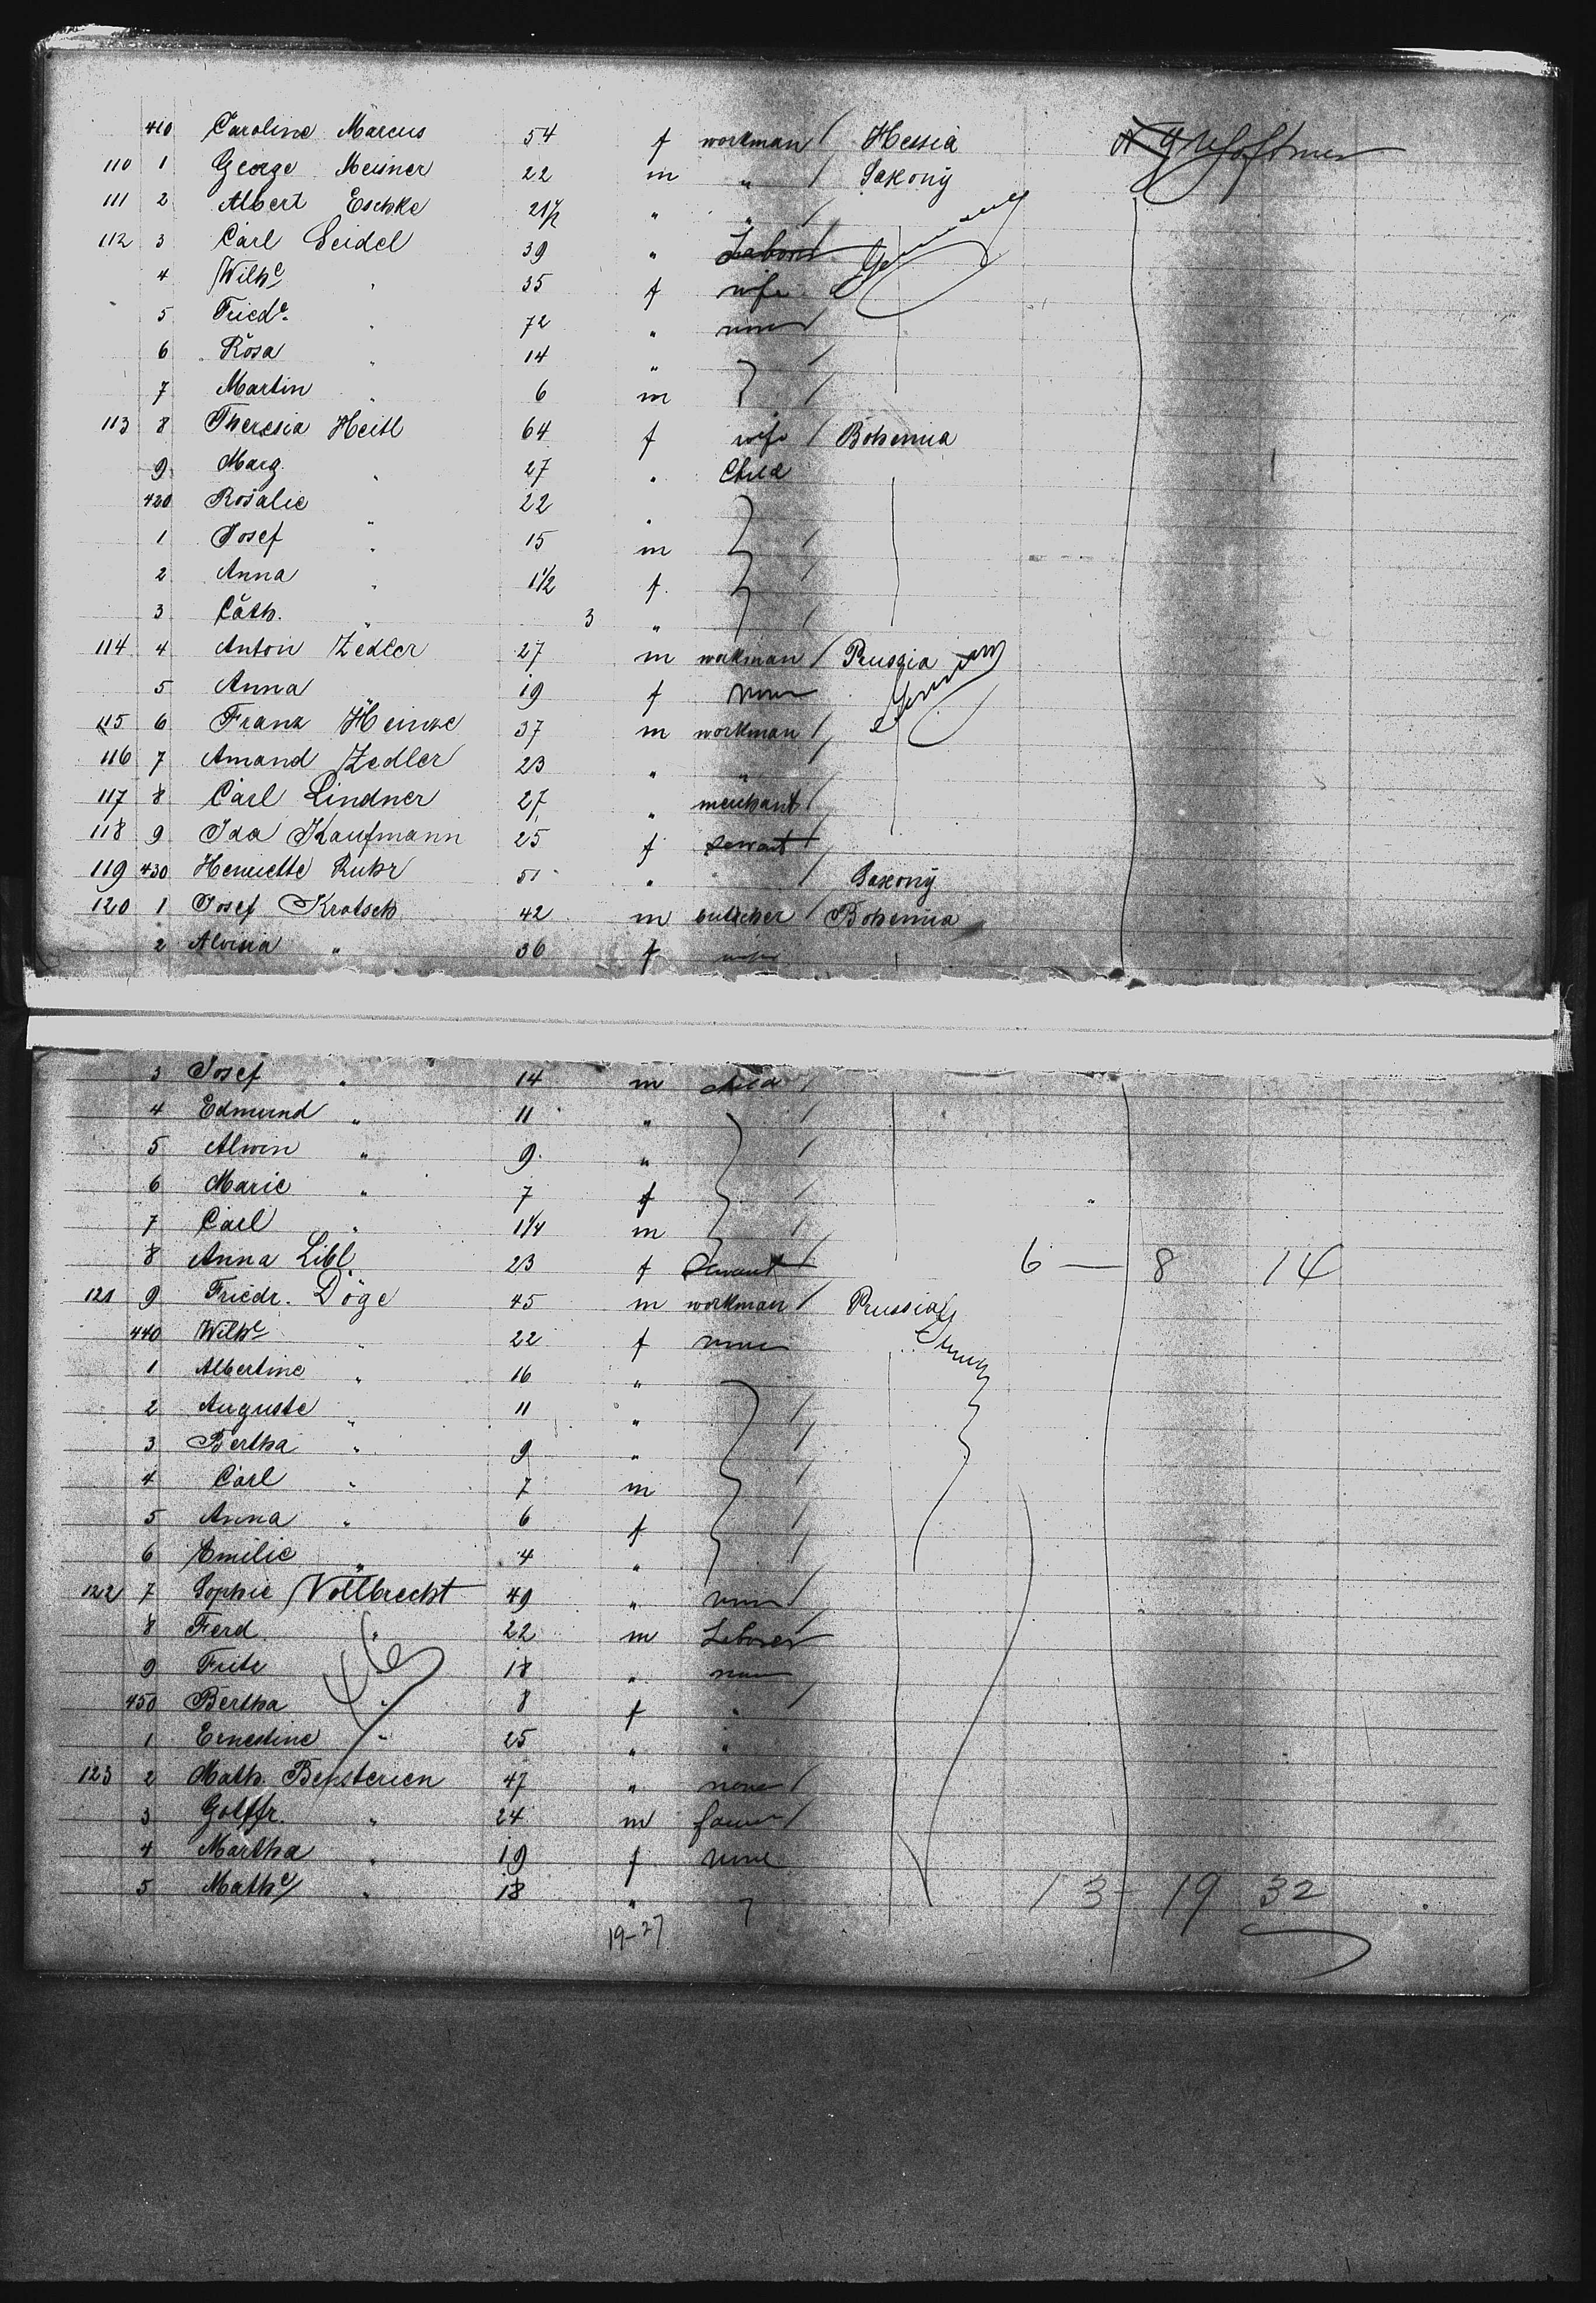 410 Caroline Marcus 54 f workman Hessia
110 1 George Meisner 22 m " Saxony
111 2 Albert Eschke 21 1/2 " "
112 3 Carl Seidel 39 " Laborer Germany
4 Wilhe " 35 f wife
5 Friede. " 72 " none
6 Rosa " 14 "
7 Martin " 6 m
113 8 Theresia Heitl 64 f wife Bohemia
9 Marg. " 27 " Child
420 Rosalie " 22 "
1 Josef " 15 m
2 Anna " 1 1/2 f.
3 Cath. " 3 "
114 4 Anton Zedler 27 m workman Prussia German
5 Anna " 19 f none
115 6 Franz Heinze 37 m workman
116 7 Amand Zedler 23 " "
117 8 Carl Lindner 27 " merchant
118 9 Ida Kaufmann 25 f servant
119 430 Henriette Ruhr 51 " Saxony
120 1 Josef Krotsch 42 m butcher Bohemia
2 Aloisia " 36 f wife
3 Josef " 14 m child
4 Edmund " 11 "
5 Alwin " 9 "
6 Marie " 7 f
7 Carl " 1 1/4 m
8 Anna Libl 23 f Servant 6 — 8 14
121 9 Friedr. Döge 45 m workman Prussia
440 Wilhe " 22 f none
1 Albertine " 16 "
2 Auguste " 11 "
3 Bertha " 9 "
4 Carl " 7 m
5 Anna " 6 f
6 Emilie " 4 "
122 7 Sophie Vollbrecht 49 " none
8 Ferd. " 22 m Laborer
9 Fritz 18 " none
450 Bertha " 8 f "
1 Ernestine " 25 " "
123 2 Math. 47 " none
3 Gottfr. " 24 m farmer
4 Martha " 19 f none
5 Mathe " 18 " 13 - 19 32
19-27